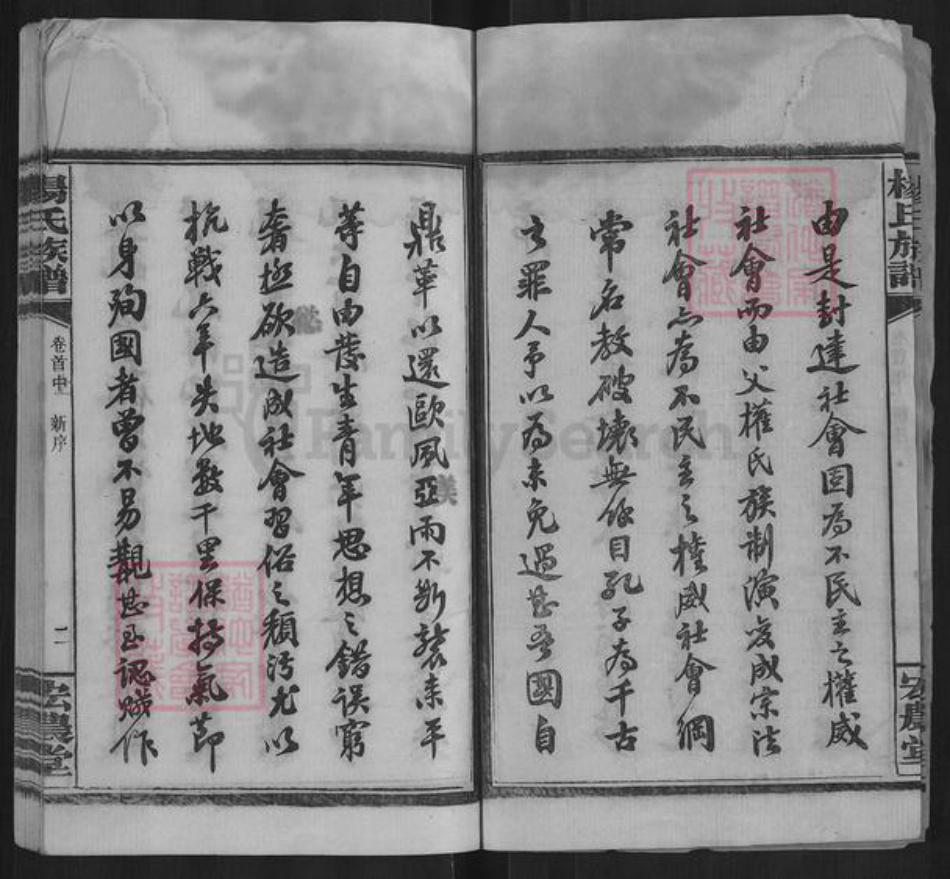 楊氏族譜
由是封建社會固為不民主之權威
社會而由父權氏族制演變成宗法
社會亦為不民主之權威社會綱
常名教破壞無餘目孔子為千古
之罪人予以為未免過甚吾國自
宏農堂
鼎革以還歐風亞雨不斷襲來平
等自由發生青年思想之錯誤窮
奢極欲造成社會習俗之頹污尤以
抗戰六年失地數千里保持氣節
以身殉國者曾不易觀甚至認賊作
楊氏族譜
卷首中 新序
二
宏農堂
FamilySearch